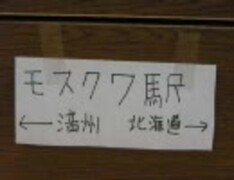 モスクワ駅
←満州 北海道→